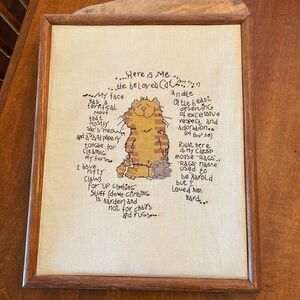 ...Here is Me...
...the beloved Cat...
My face
has a
terrifical
mout
that
mostly
says meow
and a sandpapery
tongue for
cleaning
my fur...
I have
nifty
claws
for "UP climbing"
stuff (down climbing
is harder) and
not for chairs
and rugs...
a noble
little beast
deserving
of excessive
respect and
adoration..
(of course)
Right here
is my catnip
mouse "Rags"..
"Rags" name
used to
be Harold
but I
loved him
hard...